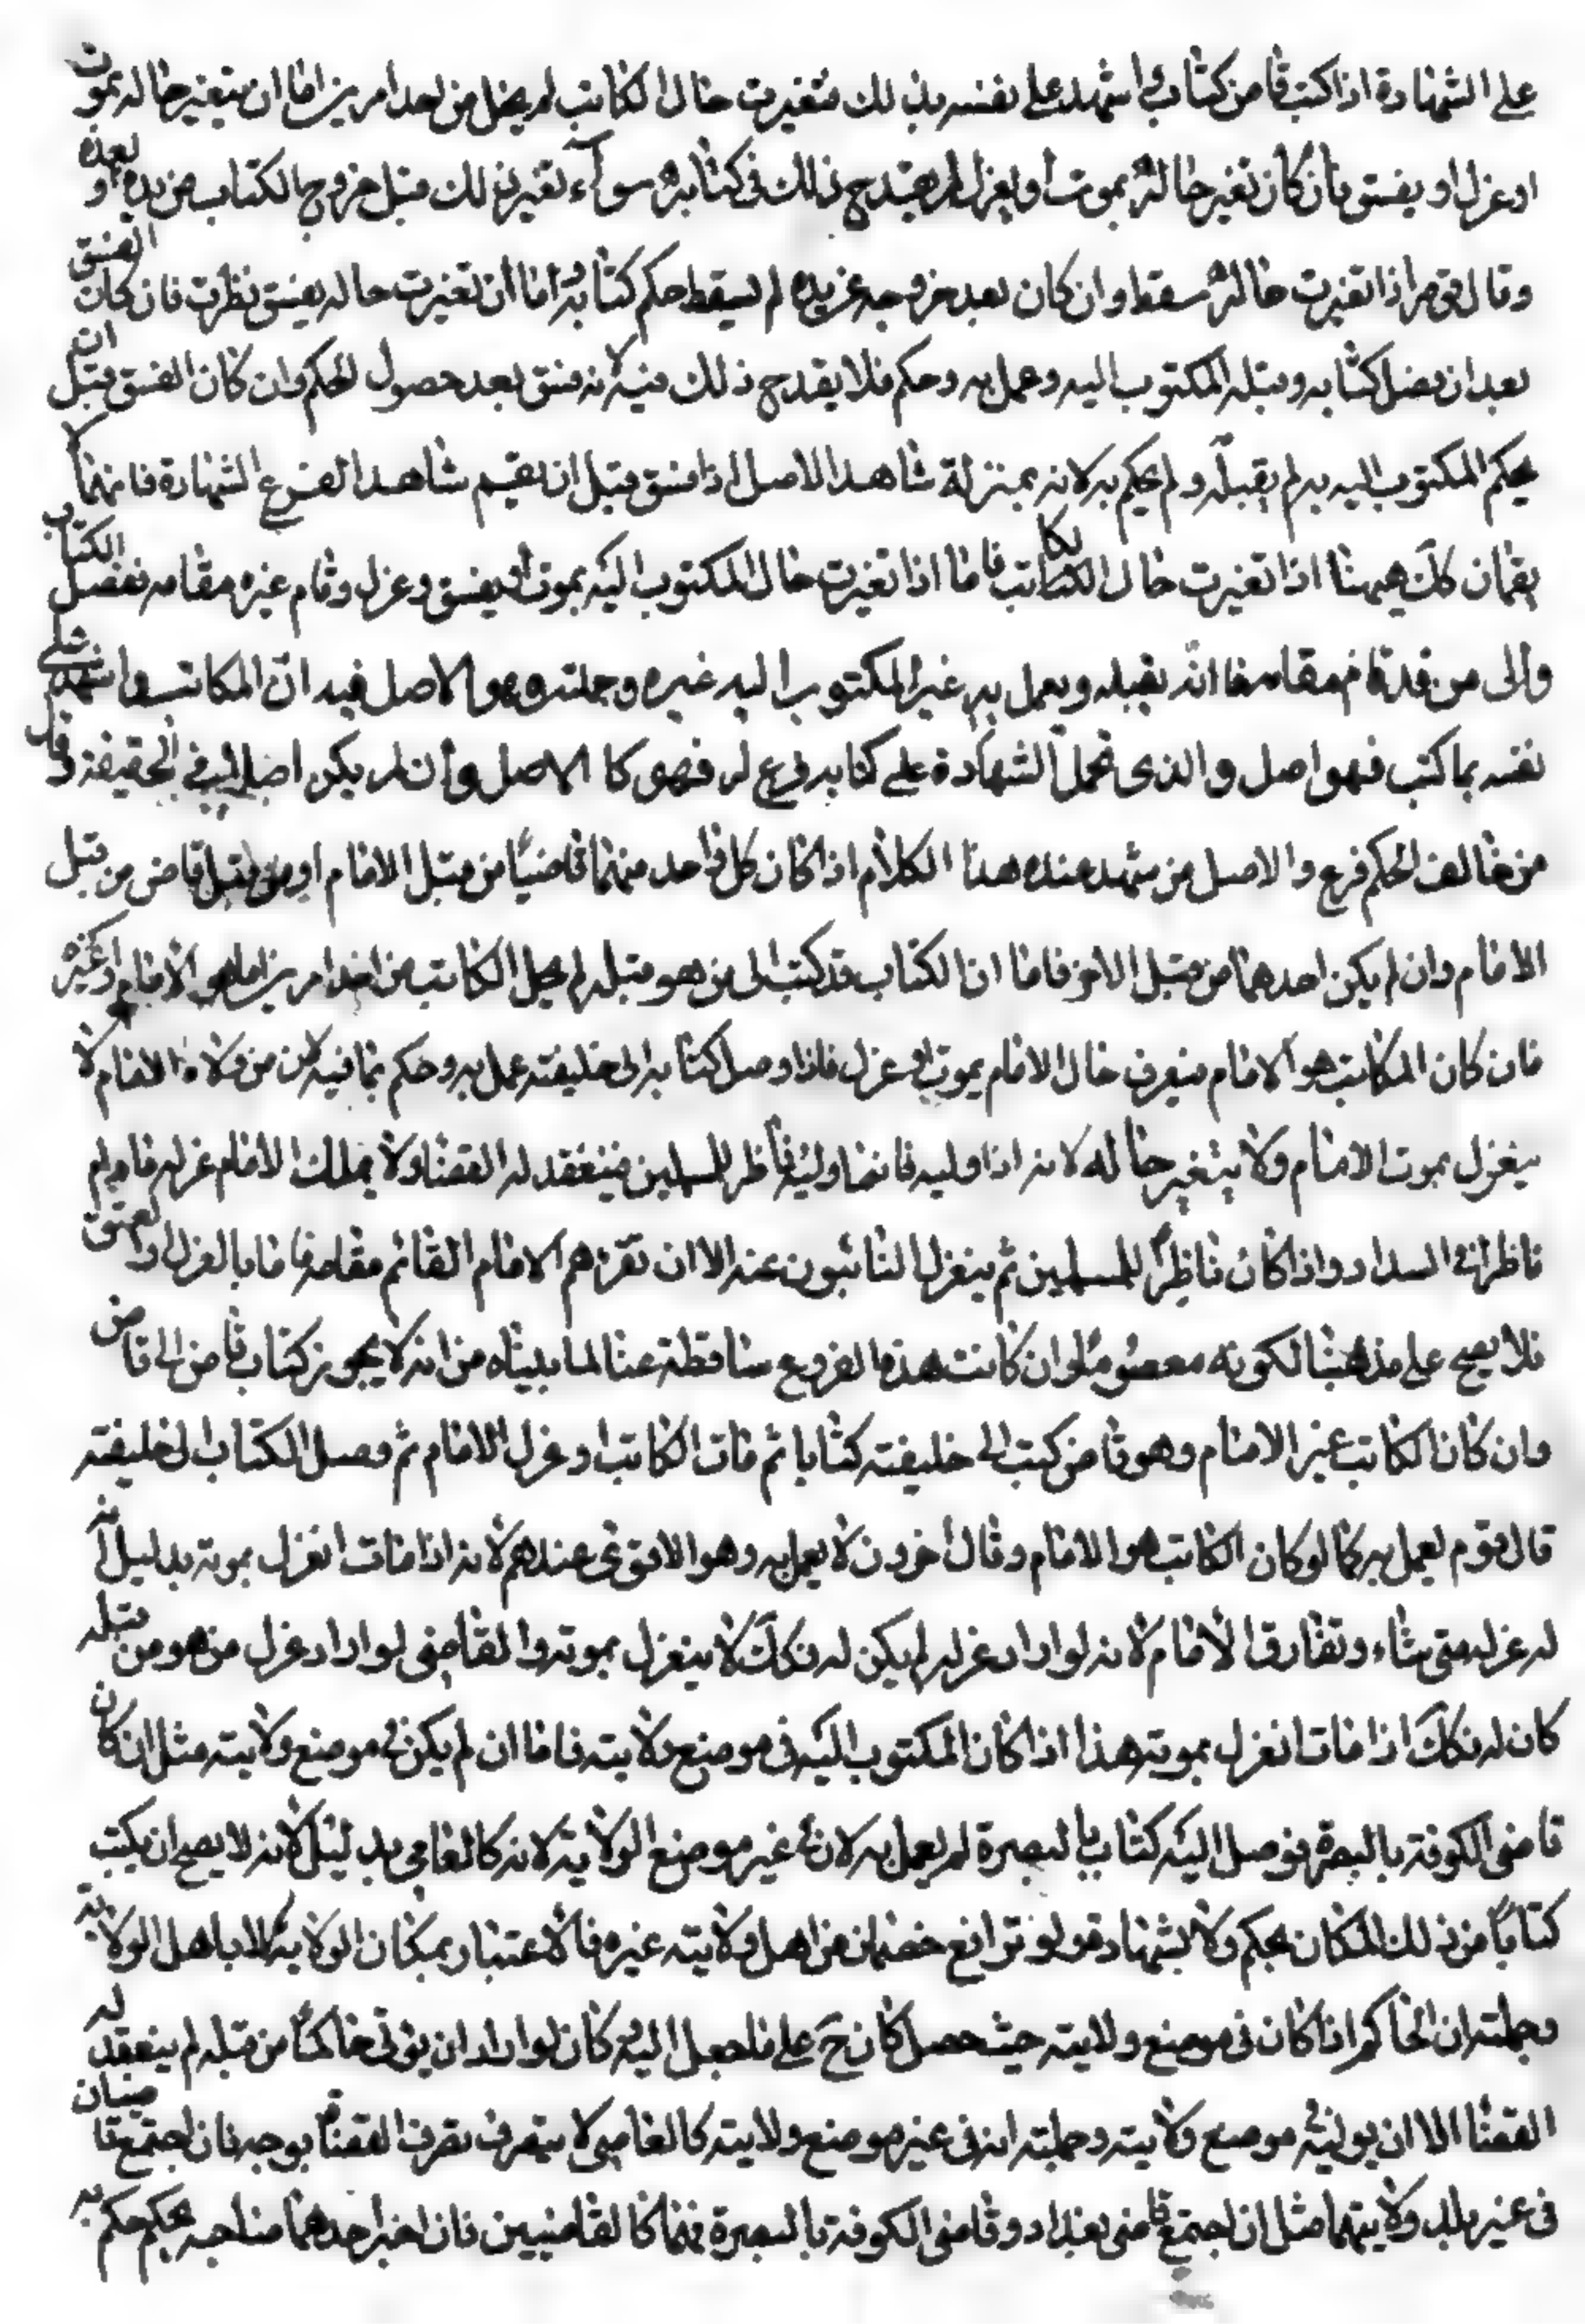 على الشهادة اذا كتب قاض كتابا و اشهد على نفسه بذلك فتغيرت حال الكاتب لم يخل من احد امرين اما ان يتغير حاله بموت
او عزل او بفسق فان كان تغير حاله بموت أو بعزل لم يقدح ذلك في كتابه سوآء تغير بذلك قبل خروج الكتاب من يده او بعده
وقال قوم اذا تغيرت حاله سقط وان كان بعد خروجه عن يده لم يسقط حكم كتابه و اما ان تغيرت حاله بفسق نظرت فان كان الفسق
بعد ان وصل كتابه وقبله المكتوب اليه وعمل به وحكم فلا يقدح ذلك فيه لانه فسق بعد حصول الحكم وان كان الفسق قبل ان
يحكم المكتوب اليه به لم يقبله و لم يحكم به لانه بمنزلة شاهد الاصل اذا فسق قبل ان يقيم شاهد الفرع الشهادة فانهما لا
يقمان كك هيهنا اذا تغيرت حال الكاتب فاما اذا تغيرت حال المكتوب اليه بموت او بفسق و عزل وقام غيره مقامه فوصل الكتاب
والى من قد قام مقامه فانه يقبله ويعمل به غير المكتوب اليه غيره وجملته وهو الاصل فيه ان المكاتب و اشهد على
نفسه بما كتب فهو اصل والذى تحمل الشهادة على كتابه فرع له فهو كا الاصل وأن لم يكن اصلا في الحقيقة و قال
من خالف الحكم فرع والاصل من شهد عنده هذا الكلام اذا كان كل واحد منهما قاضيا من قبل الامام او من قبل قاض من قبل
الامام وان لم يكن احدهما من قبل الاخر فاما ان الكتاب قد كتب الى من هو قبله لم يخل الكاتب من احد امرين اما هو الامام او غيره
فان كان المكاتب هو الامام فيعرف حال الامام بموت او عزل فاذا وصل كتابه الى خليفته عمل به وحكم بما فيه لان من ولاه الامام لا
ينعزل بموت الامام ولا يتغير حاله لانه اذا وليه فانما وليه ناظر للمسلمين فينعقد له القضاء ولا يملك الامام عزله ما دام
ناظرا في السداد واذا كان ناظرا للمسلمين ثم ينعزل النائبون عنه الا ان يقرهم الامام القائم مقامه فاما بالعزل او لفسق
فلا يصح على مذهبنا لكونه معصوما وان كانت هذه الفروع ساقطة عنا لما بيناه من انه لا يجوز كتاب قاض الى قاض
وان كان الكاتب غير الامام وهو قاض كتب الى خليفته كتابا ثم مات الكاتب او عزل الامام ثم وصل الكتاب الى خليفته
قال قوم يعمل به كما لو كان الكاتب هو الامام وقال أخرون لا يعمل به وهو الاقوى عندهم لانه اذا مات انعزل بموته بدليل انه
له عزله متى شاء وتفارق الامام لانه لو اراد عزله لم يكن له فكك لا ينعزل بموته والقاضى لو اراد عزل من هو من قبله
كان له فكك اذا مات انعزل بموته هذا اذا كان المكتوب اليه في موضع ولايته فاما ان لم يكن في موضع ولايته مثل ان كان
قاضى الكوفة بالبصرة فوصل اليه كتاب بالبصرة لم يعمل به لانه في غير موضع الولاية لانه كالعامى بدليل لانه لا يصح ان يكتب
كتابا من ذلك المكان بحكم ولا بشهادة ولو ترافع خصمان من اهل ولايته غيره فالاعتبار بمكان الولاية لا باهل الولاية
وجملته ان الحاكم اذا كان في موضع ولايته حيث حصل كان ح على ما جعل اليه و كان لو اراد ان يولى حاكما من قبله لم ينعقد له
القضاء الا ان يوليه موضع ولايته وجملته انه في غير موضع ولايته كالعامى لا يتصرف تصرف القضاء بوجه فان اجتمع قاضيان
في غير بلد ولايتهما مثل ان اجتمع قاضى بغداد وقاضى الكوفة بالبصرة فهما كالقاضيين فان اخبر احدهما صاحبه بحكم حكم به